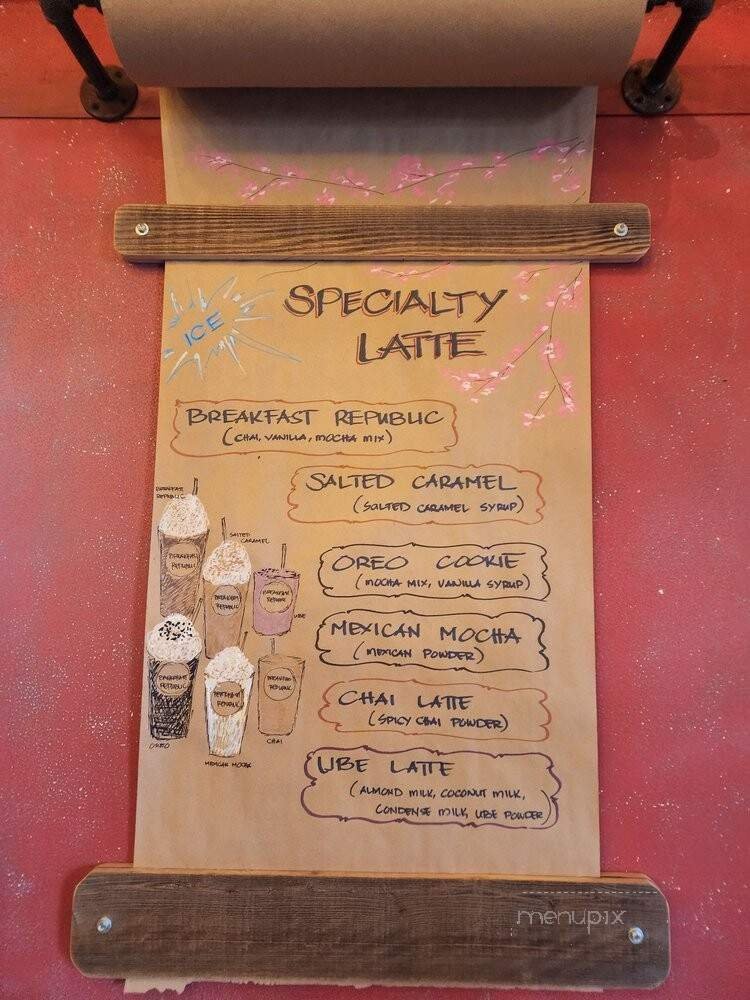 ICE
SPECIALTY
LATTE
BREAKFAST REPUBLIC
(CHAI, VANILLA, MOCHA MIX)
SALTED CARAMEL
(SALTED CARAMEL SYRUP)
OREO COOKIE
(MOCHA MIX, VANILLA SYRUP)
MEXICAN MOCHA
(MEXICAN POWDER)
CHAI LATTE
(SPICY CHAI POWDER)
UBE LATTE
(ALMOND MILK, COCONUT MILK,
CONDENSE MILK, UBE POWDER)
BREAKFAST
REPUBLIC
BREAKFAST
REPUBLIC
SALTED
CARAMEL
BREAKFAST
REPUBLIC
BREAKFAST
REPUBLIC
UBE
BREAKFAST
REPUBLIC
OREO
BREAKFAST
REPUBLIC
MEXICAN MOCHA
BREAKFAST
REPUBLIC
CHAI
menupix